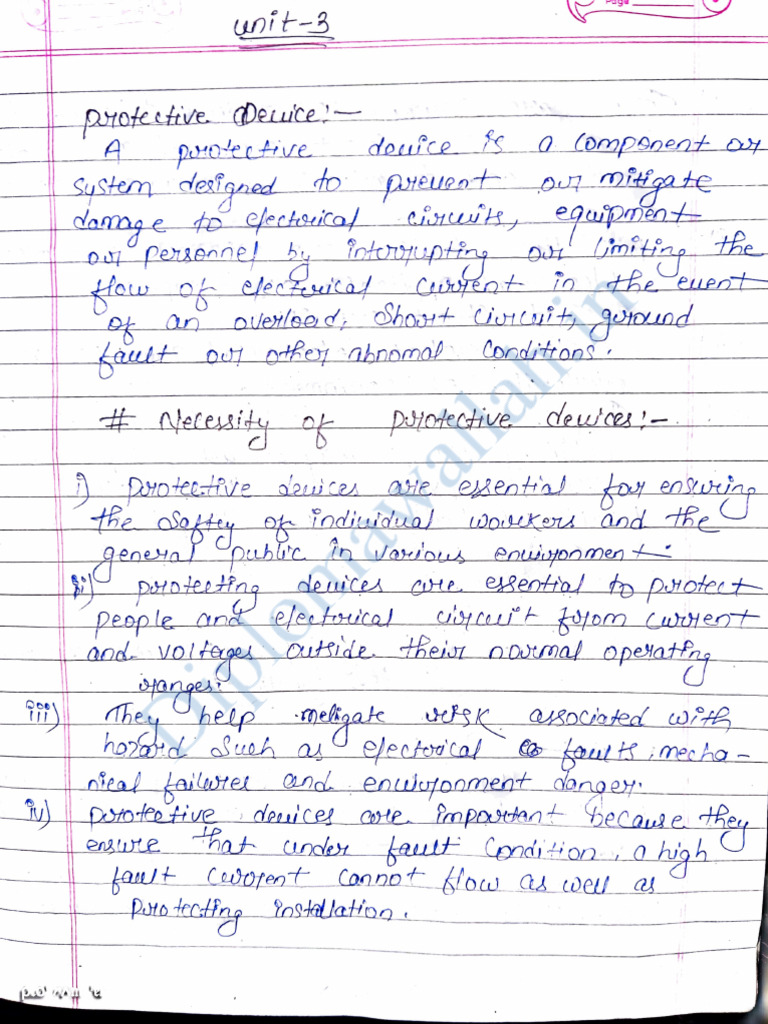 Page
Unit-3
Protective Device:-
A protective device is a component or
system designed to prevent or mitigate
damage to electrical circuits, equipment
or personnel by interrupting or limiting the
flow of electrical current in the event
of an overload, Short circuit, ground
fault or other abnomal conditions.
# Necessity of protective devices:-
i) protective devices are essential for ensuring
the Saftey of individual workers and the
general public in various environment.
ii) protecting devices are essential to protect
people and electrical circuit from current
and voltages outside their normal operating
ranges.
iii) They help meligate risk associated with
hazard Such as electrical faults, mecha-
nical failures and environment danger.
iv) protective devices are important because they
ensure that under fault Condition, a high
fault current cannot flow as well as
protecting installation.
Diplomawallah.in